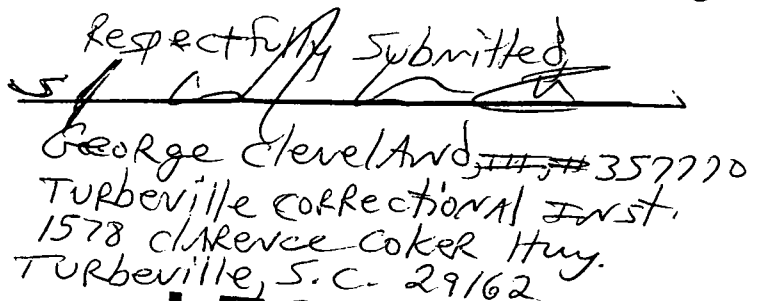 Respectfully Submitted,
George Cleveland, III, # 357770
Turbeville Correctional Inst.
1578 Clarence Coker Hwy.
Turbeville, S.C. 29162